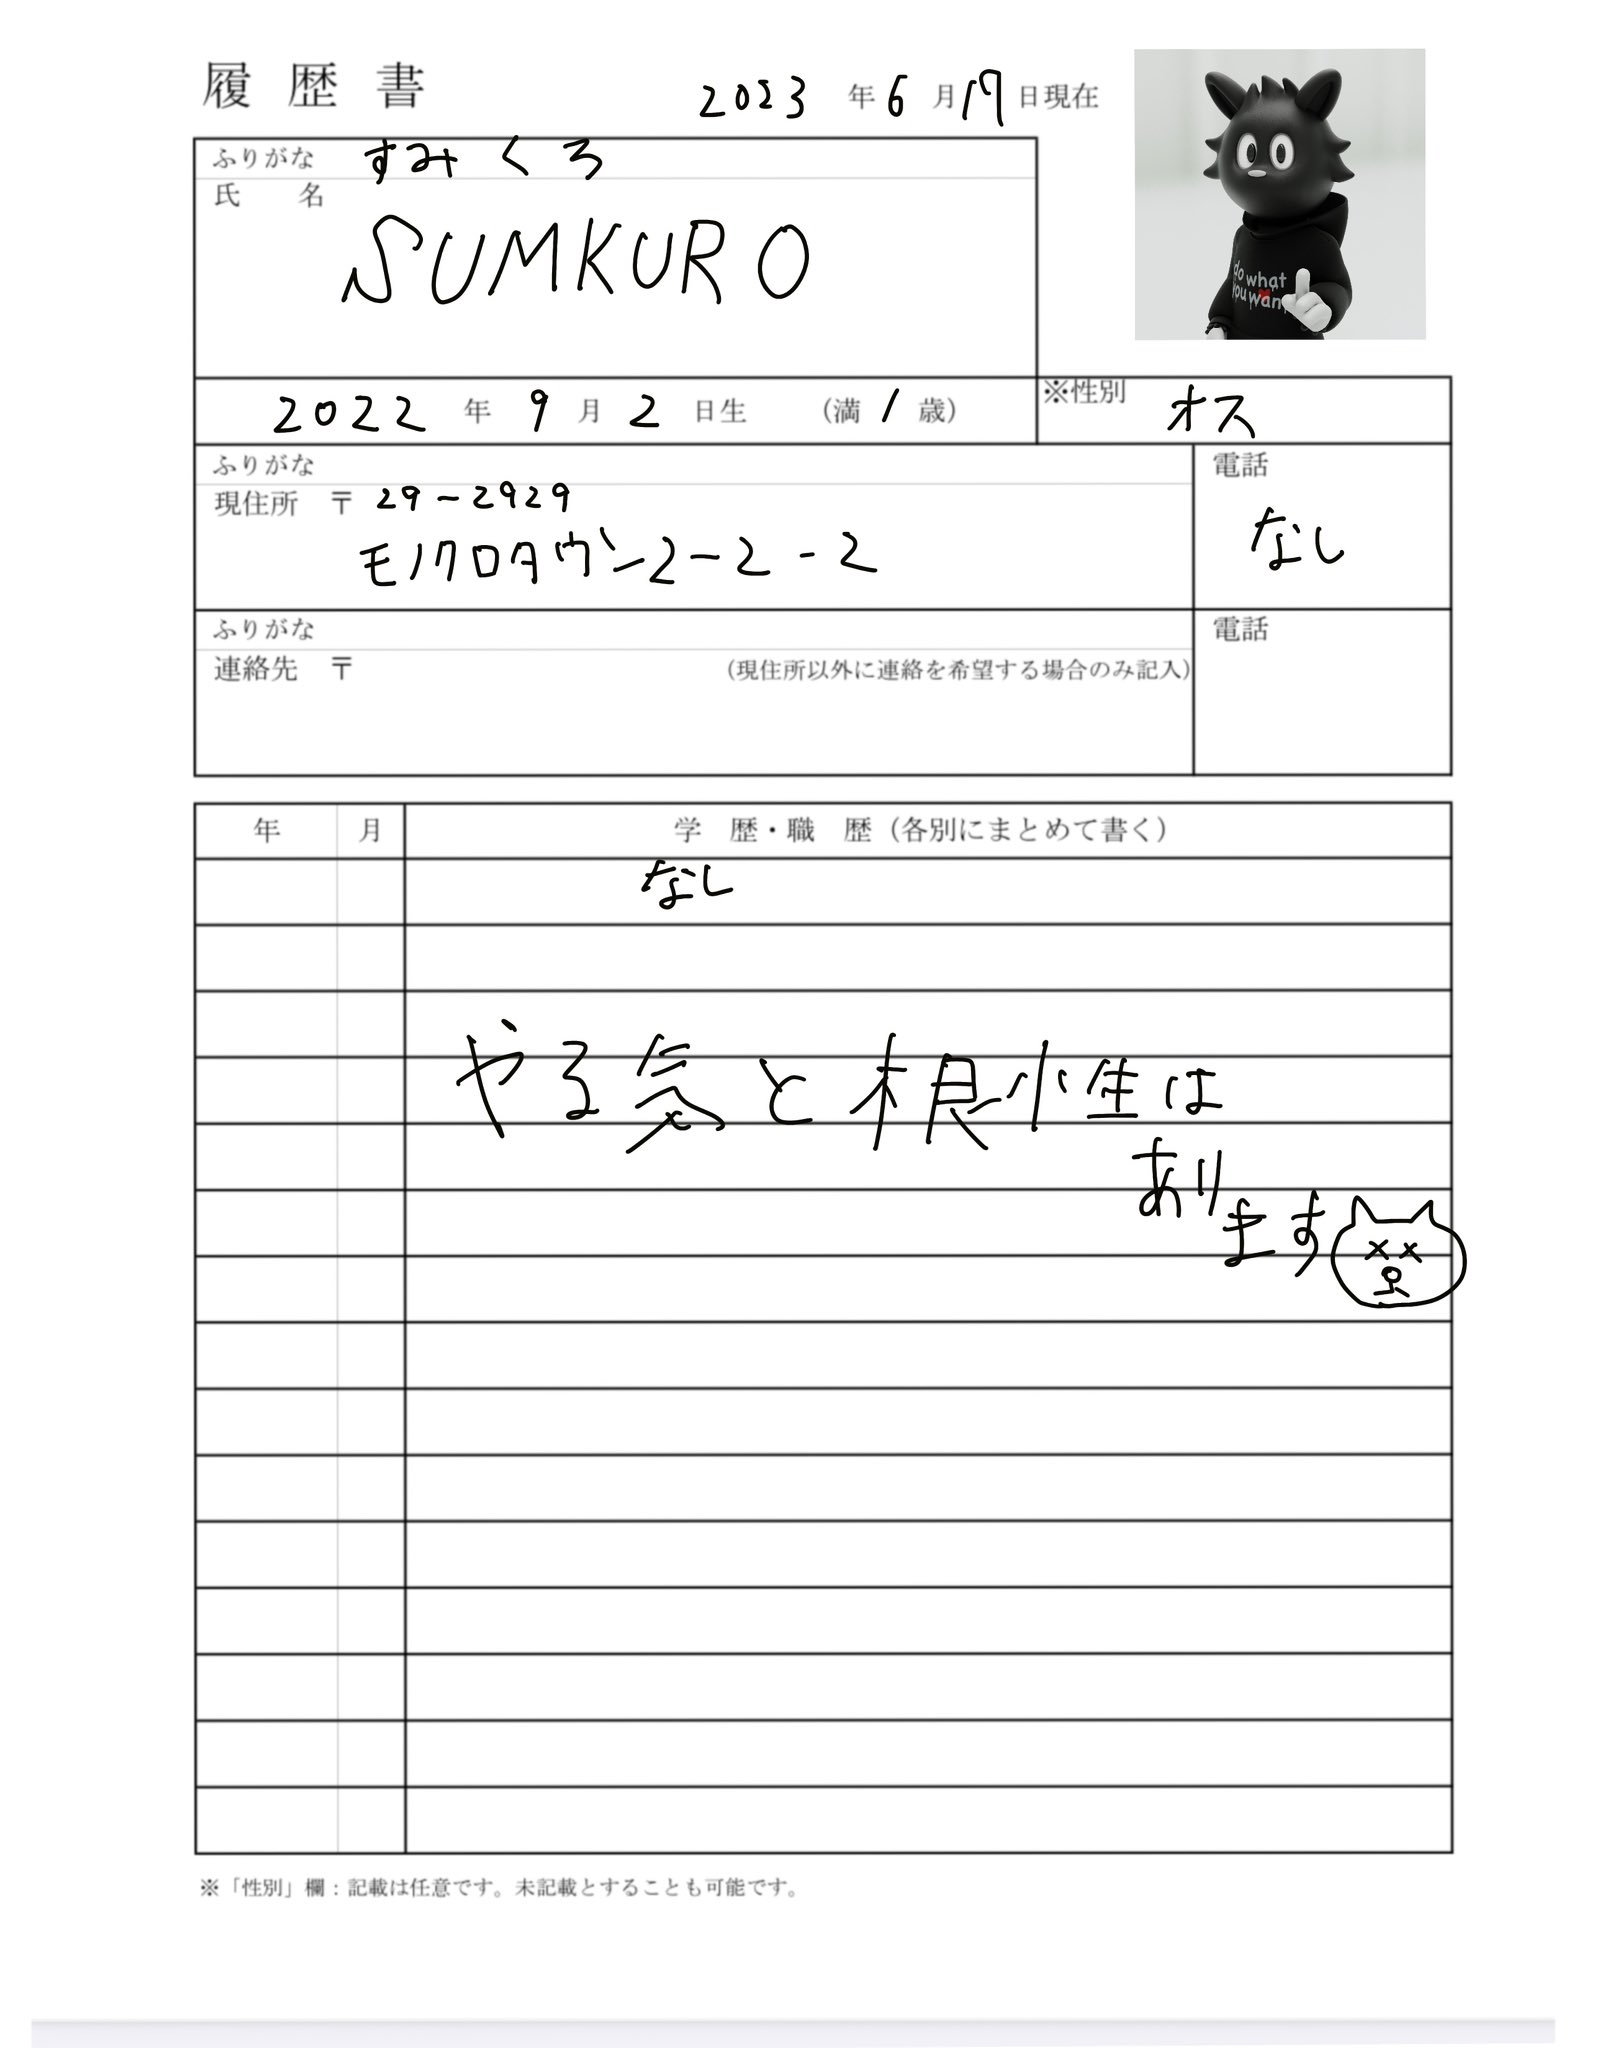 履歴書
2023年6月17日現在
ふりがな すみくろ
氏 名
SUMKURO
do what
you want
2022年9月2日生 (満1歳)
※性別 オス
ふりがな
現住所 〒 29-2929
モノクロタウン2-2-2
電話
なし
ふりがな
連絡先 〒 (現住所以外に連絡を希望する場合のみ記入)
電話
年 月 学 歴・職 歴(各別にまとめて書く)
なし
やる気と根小生は
あり
ます
※「性別」欄:記載は任意です。未記載とすることも可能です。